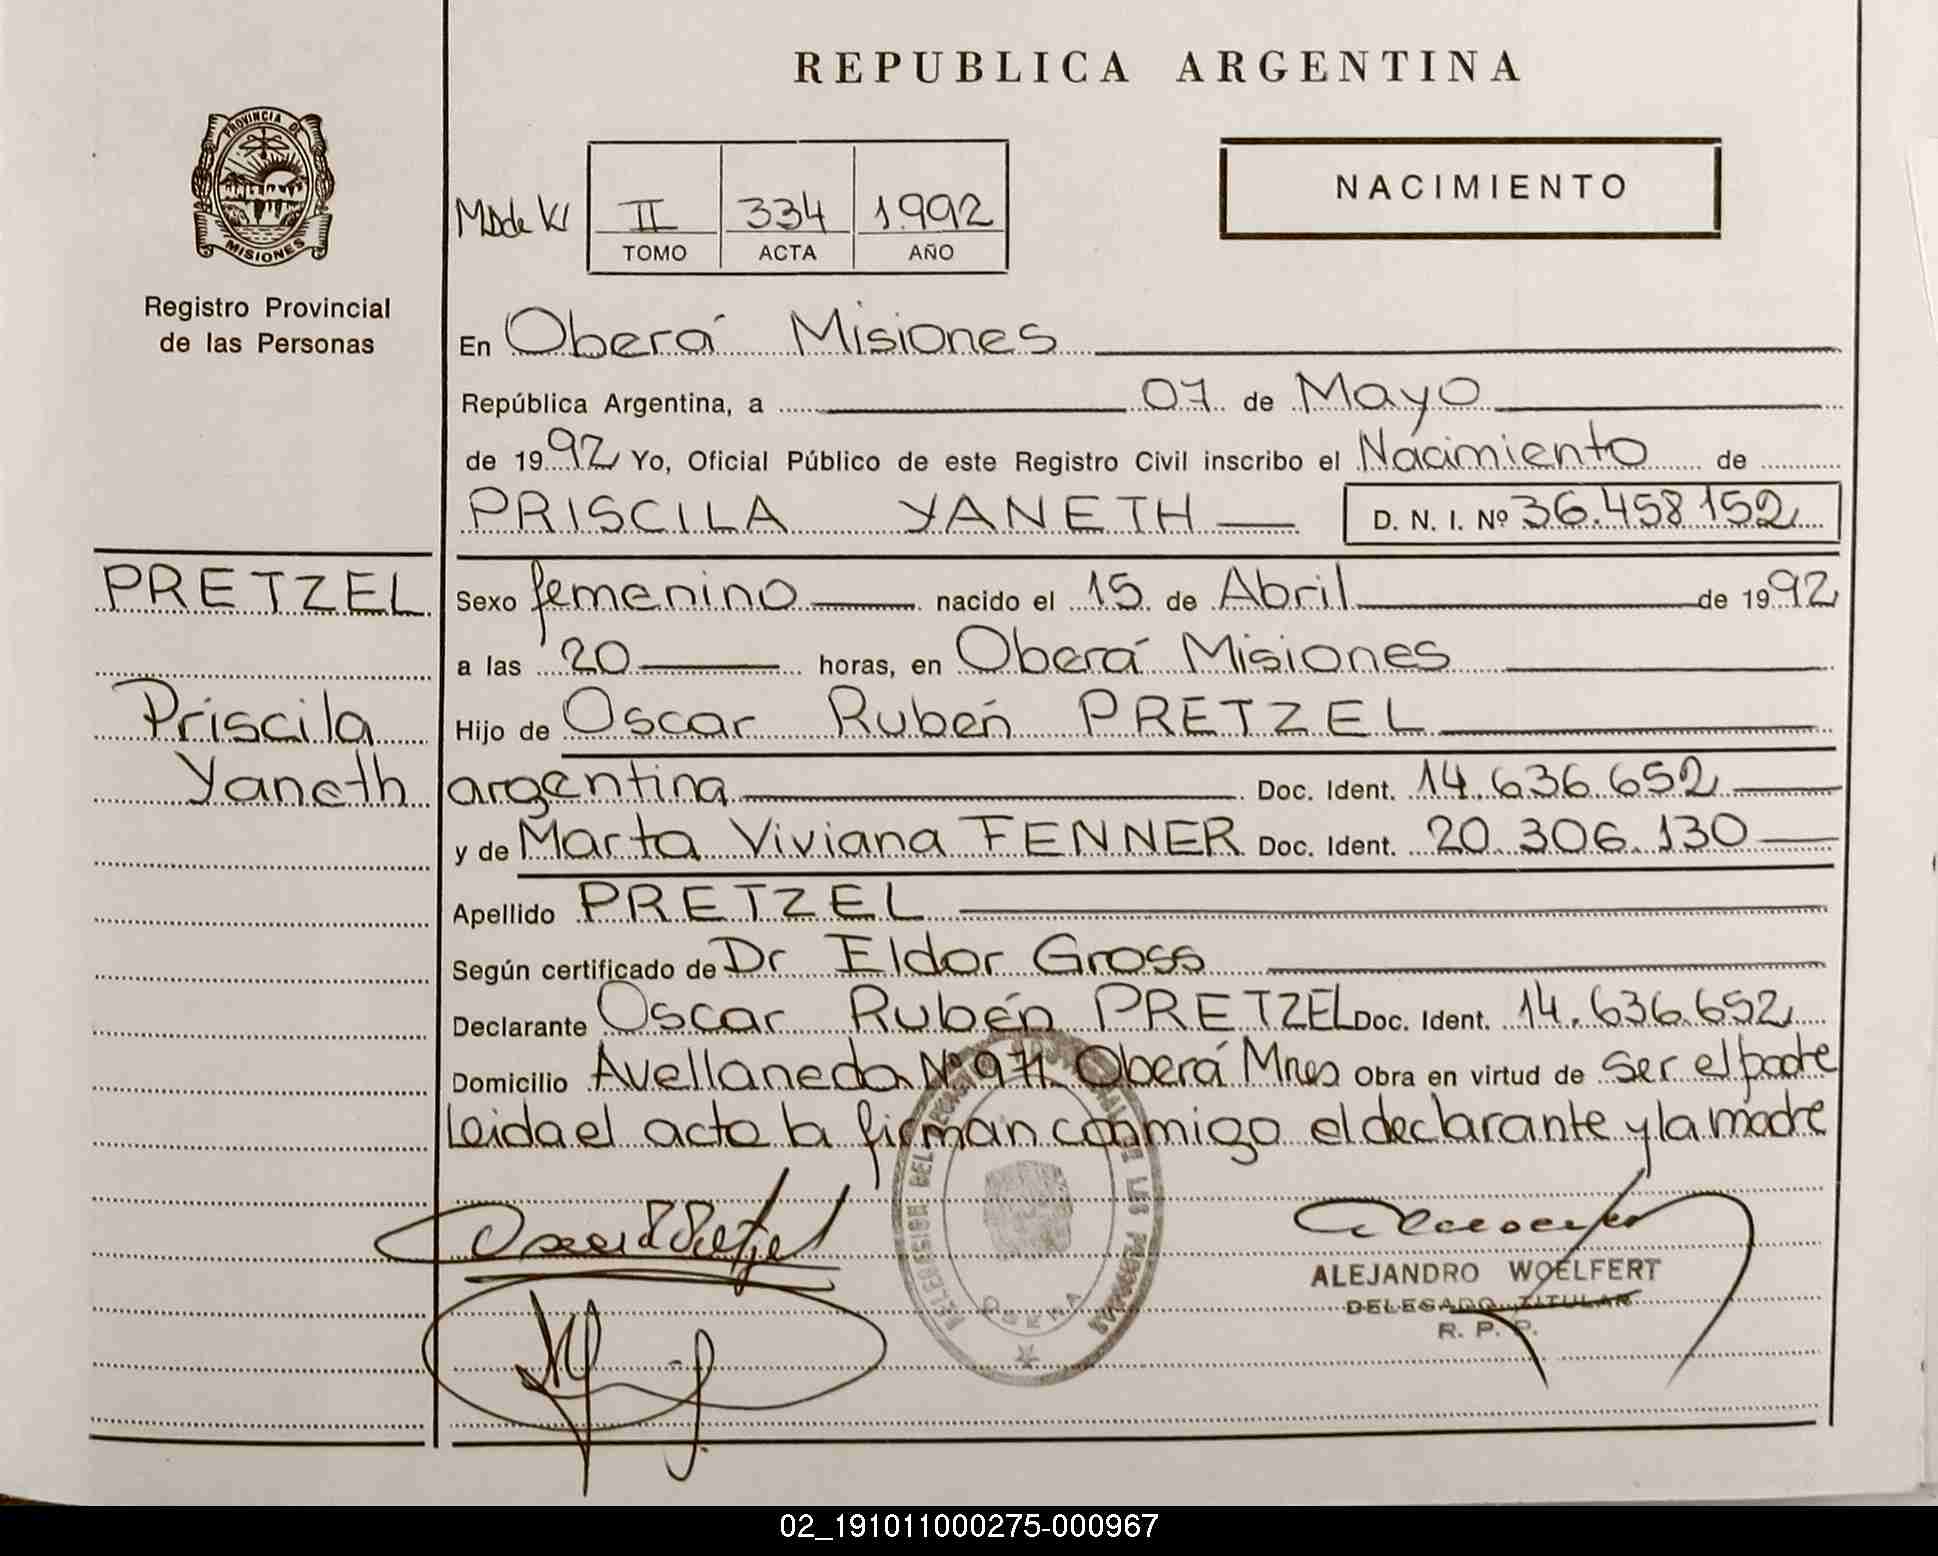 REPUBLICA ARGENTINA
PROVINCIA DE
MISIONES
Registro Provincial
de las Personas
NACIMIENTO
II 334 1.992
TOMO ACTA AÑO
En Oberá Misiones
República Argentina, a 07 de Mayo
de 1992 Yo, Oficial Público de este Registro Civil inscribo el Nacimiento de
PRISCILA YANETH D. N. I. Nº 36.458.152
PRETZEL
Priscila
Yaneth
Sexo femenino nacido el 15 de Abril de 1992
a las 20 horas, en Oberá Misiones
Hijo de Oscar Rubén PRETZEL
argentina Doc. Ident. 14.636.652
y de Marta Viviana FENNER Doc. Ident. 20.306.130
Apellido PRETZEL
Según certificado de Dr Eldor Gross
Declarante Oscar Rubén PRETZEL Doc. Ident. 14.636.652
Domicilio Avellaneda Nº 971 Oberá Mnes Obra en virtud de ser el padre
Leida el acta la firman conmigo el declarante y la madre
ALEJANDRO WOELFERT
DELEGADO TITULAR
R. P. P.
OBERA
02_191011000275-000967